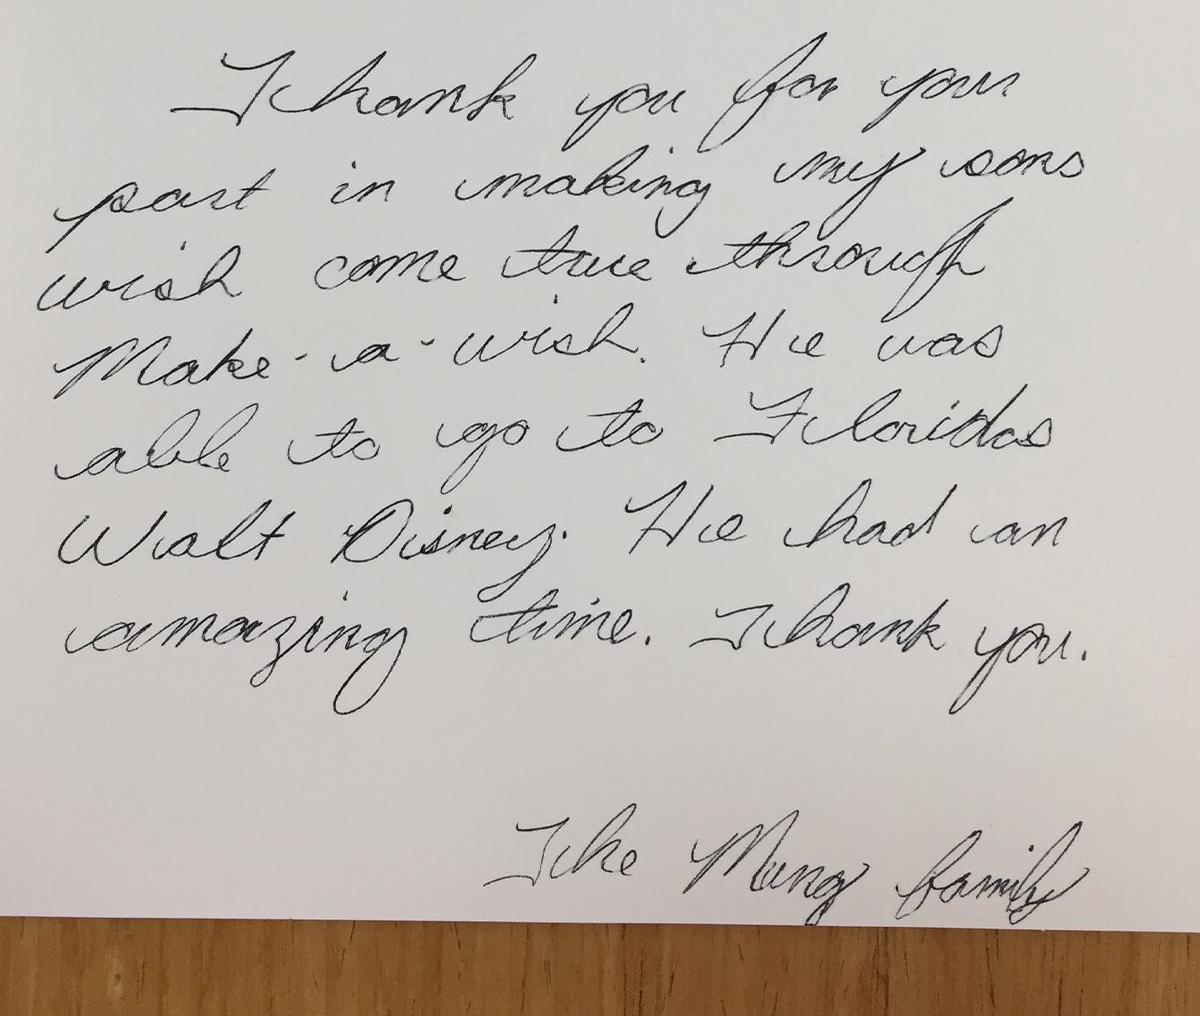 Thank you for your
part in making my sons
wish come true through
Make-a-wish. He was
able to go to Floridas
Walt Disney. He had an
amazing time. Thank you.
The Mung family